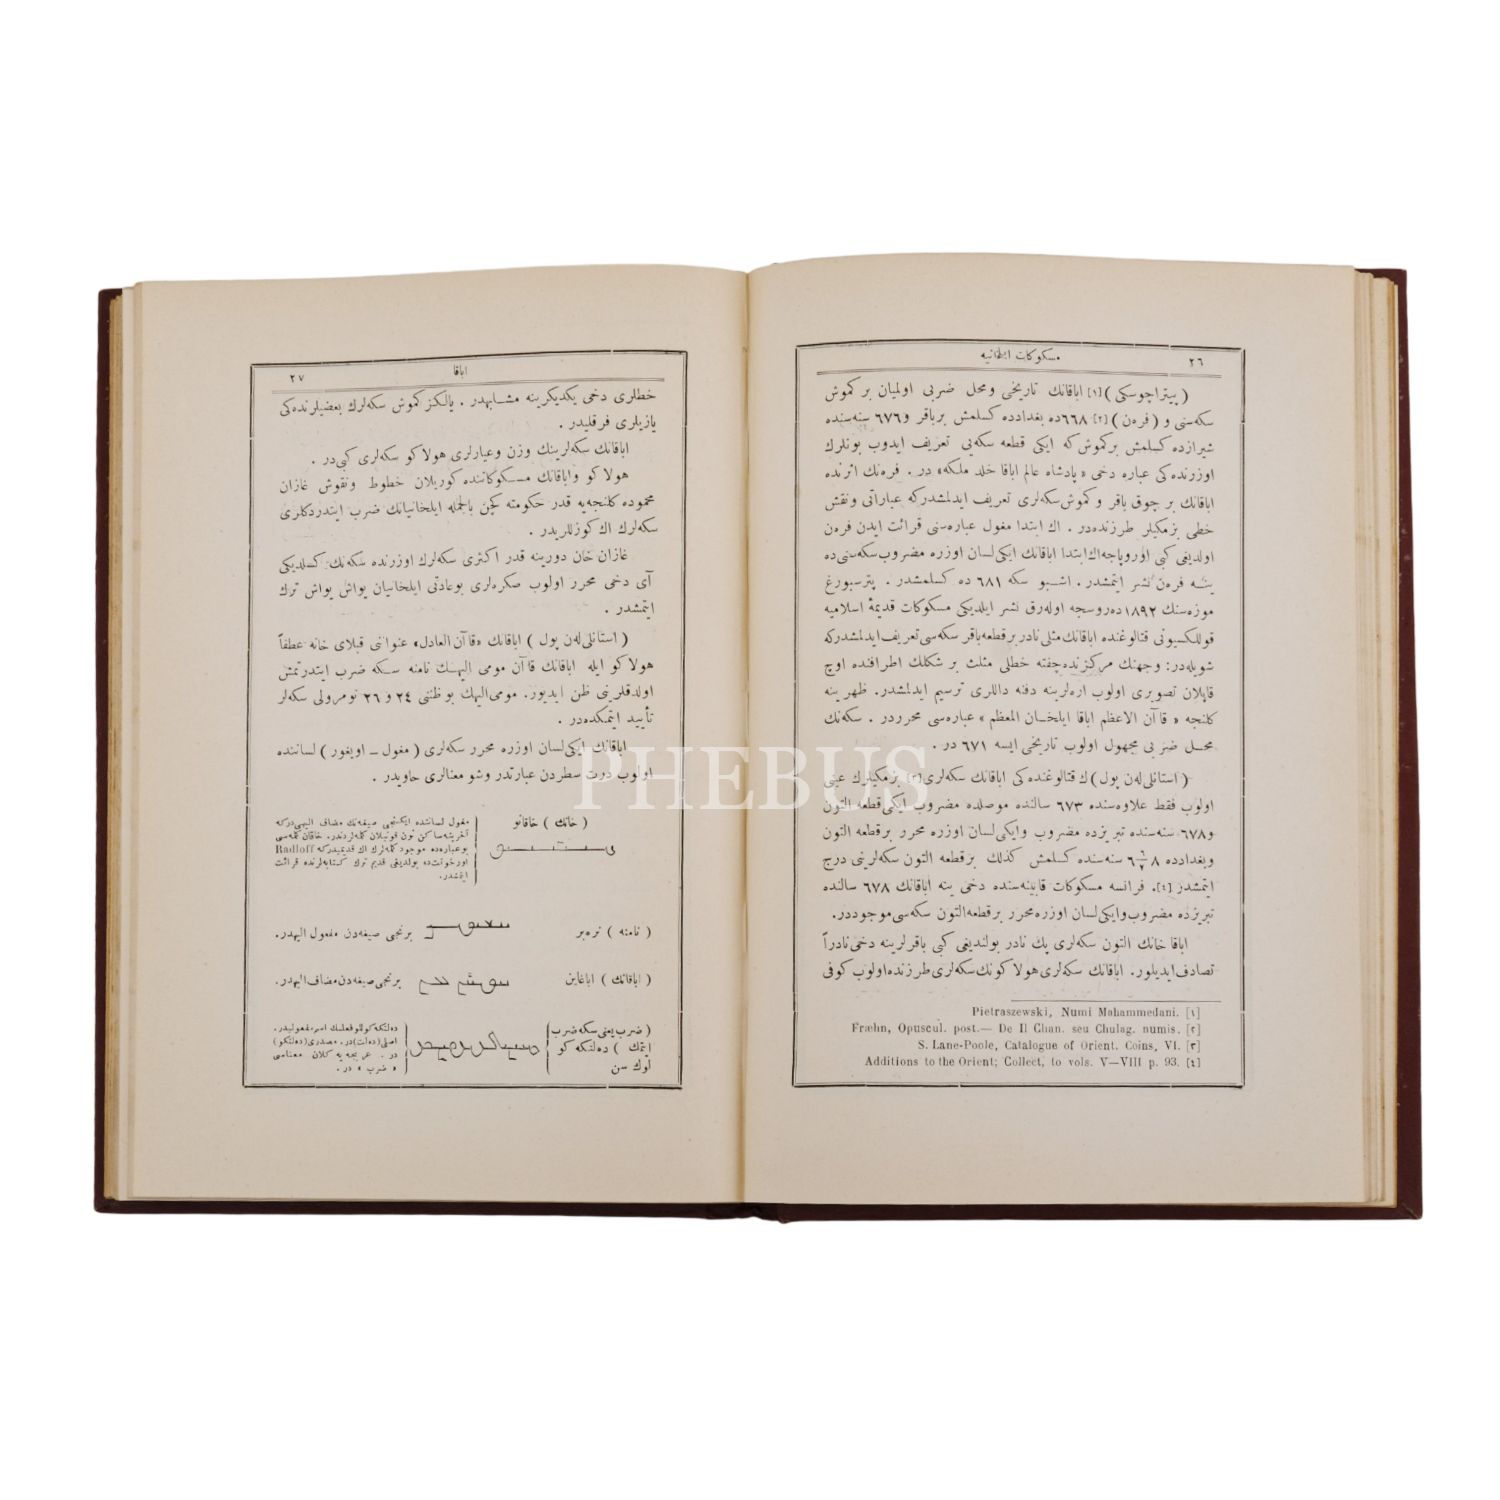 ٢٦
مسكوكات ايلخانيه
( پيتراچوسكى )[١] اباقانك تاريخى ومحل ضربى اولميان بر كموش
سكه‌سنى و ( فره‌ن )[٢] ٦٦٨ده بغدادده كسلمش برباقر و٦٧٦ سنه‌سنده
شيرازده كسلمش بركموش كه ايكى قطعه سكه‌يى تعريف ايدوب بونلرك
اوزرنده‌كى عباره دخى «پادشاه عالم اباقا خلد ملكه» در . فره‌نك اثرنده
اباقانك بر چوق باقر و كموش سكه‌لرى تعريف ايدلمشدركه عباراتى ونقش
خطى بزمكيلر طرزنده‌در . اك ابتدا مغول عباره‌سنى قرائت ايدن فره‌ن
اولديغى كبى اوروپاجه اك ابتدا اباقانك ايكى لسان اوزره مضروب سكه‌سنى ده
ينه فره‌ن نشر ايتمشدر . اشبو سكه ٦٨١ ده كسلمشدر . پترسبورغ
موزه‌سنك ١٨٩٢ده روسجه اوله‌رق نشر ايلديكى مسكوكات قديمهٔ اسلاميه
قوللكسيونى قتالوغنده اباقانك مثلى نادر برقطعه باقر سكه‌سى تعريف ايدلمشدركه
شويله‌در: وجهنك مركزنده چفته خطلى مثلث بر شكلك اطرافنده اوچ
قاپلان تصويرى اولوب ارالرينه دفنه داللرى ترسيم ايدلمشدر. ظهرينه
كلنجه « قاآن الاعظم اباقا ايلخان المعظم » عباره‌سى محرردر . سكه‌نك
محل ضربى مجهول اولوب تاريخى ايسه ٦٧١ در .
( استانلى له‌ن پول )ك قتالوغنده‌كى اباقانك سكه‌لرى[٣] بزمكيلرك عينى
اولوب فقط علاوه‌سنده ٦٧٣ سالنده موصلده مضروب ايكى قطعه التون
و٦٧٨ سنه‌سنده تبريزده مضروب وايكى لسان اوزره محرر برقطعه التون
وبغدادده سنه‌سنده كسلمش كذلك برقطعه التون سكه‌لرينى درج
ايتمشدر[٤]. فرانسه مسكوكات قابينه‌سنده دخى ينه اباقانك ٦٧٨ سالنده
تبريزده مضروب وايكى لسان اوزره محرر برقطعه التون سكه‌سى موجوددر.
اباقا خانك التون سكه‌لرى پك نادر بولنديغى كبى باقرلرينه دخى نادراً
تصادف ايديلور. اباقانك سكه‌لرى هولاكونك سكه‌لرى طرزنده اولوب كوفى
Pietraszewski, Numi Mohammedani. [١]
Fræhn, Opuscul. post.— De Il Chan. seu Chulag. numis. [٢]
S. Lane-Poole, Catalogue of Orient. Coins, VI. [٣]
Additions to the Orient; Collect, to vols. V—VIII p. 93. [٤]
اباقا
٢٧
خطلرى دخى يكديكرينه مشابهدر . يالكز كموش سكه‌لرك بعضيلرنده‌كى
يازيلرى فرقليدر .
اباقانك سكه‌لرينك وزن وعيارلرى هولاكو سكه‌لرى كبى در .
هولاكو واباقانك مسكوكاتنده كوريلان خطوط ونقوش غازان
محموده كلنجه‌يه قدر حكومته كچن بالجمله ايلخانيانك ضرب ايتدردكلرى
سكه‌لرك اك كوزللريدر .
غازان خان دورينه قدر اكثرى سكه‌لرك اوزرنده سكه‌نك كسلديكى
آى دخى محرر اولوب صكره‌لرى بوعادتى ايلخانيان يواش يواش ترك
ايتمشدر .
( استانلى له‌ن پول ) اباقانك «قاآن العادل» عنواننى قبلاى خانه عطفاً
هولاكو ايله اباقانك قاآن مومى اليهك نامنه سكه ضرب ايتدرتمش
اولدقلرينى ظن ايديور. مومى اليهك بوظننى ٢٤ و ٢٦ نومرولى سكه‌لر
تأييد ايتمكده‌در .
اباقانك ايكى لسان اوزره محرر سكه‌لرى ( مغول ـ اويغور ) لساننده
اولوب درت سطردن عبارتدر وشو معنالرى حاويدر .
( خانك ) خاقانو
مغول لساننده ايكنجى صيغه‌نك مضاف اليهى دركه
آخرينه ساكن نون قونيلان كله‌لردندر. خاقان كله‌سى
بوعباره‌ده موجود كله‌لرك اك قديميدركه Radloff
اورخونت‌ده بولديغى قديم ترك كتابه‌لرنده قرائت
ايتمشدر.
( نامنه ) نره‌بر
برنجى صيغه‌دن مفعول اليهدر.
( اباقانك ) اباغاين
برنجى صيغه‌دن مضاف اليهدر.
( ضرب يعنى سكه ضرب
ايتمك ) ده‌لتكه كو
لوك سن
ده‌لتكه كولو فعلنك اسم مفعوليدر.
اصلى (ده‌لت) در. مصدرى (ده‌لتكو)
در . عربجه‌يه كلان معناسى
« ضرب » در .
PHEBUS